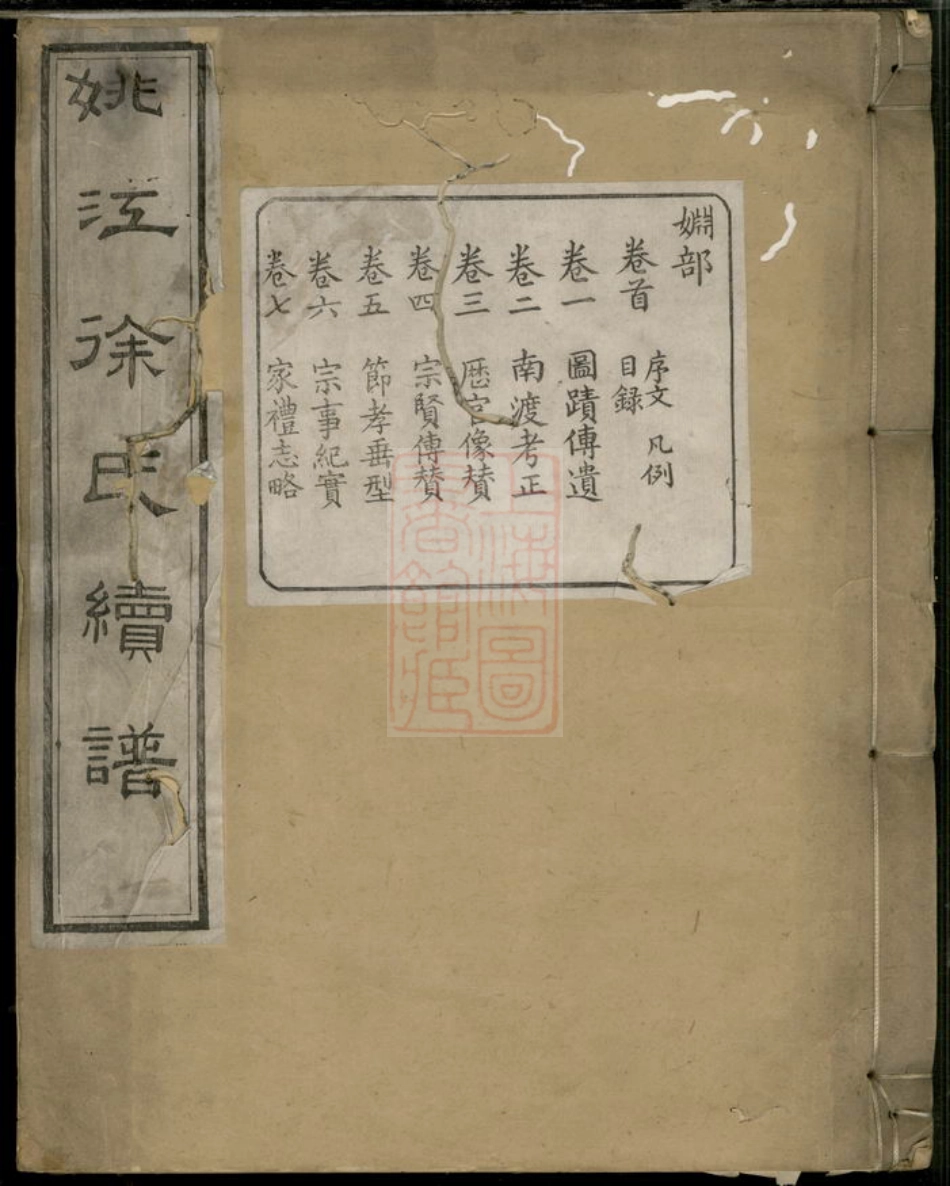 姚江徐氏續譜
婣部
卷首 序文 凡例
目錄
卷一 圖蹟傳遺
卷二 南渡考正
卷三 歷官像贊
卷四 宗賢傳贊
卷五 節孝垂型
卷六 宗事紀實
卷七 家禮志略
上海圖
書館藏